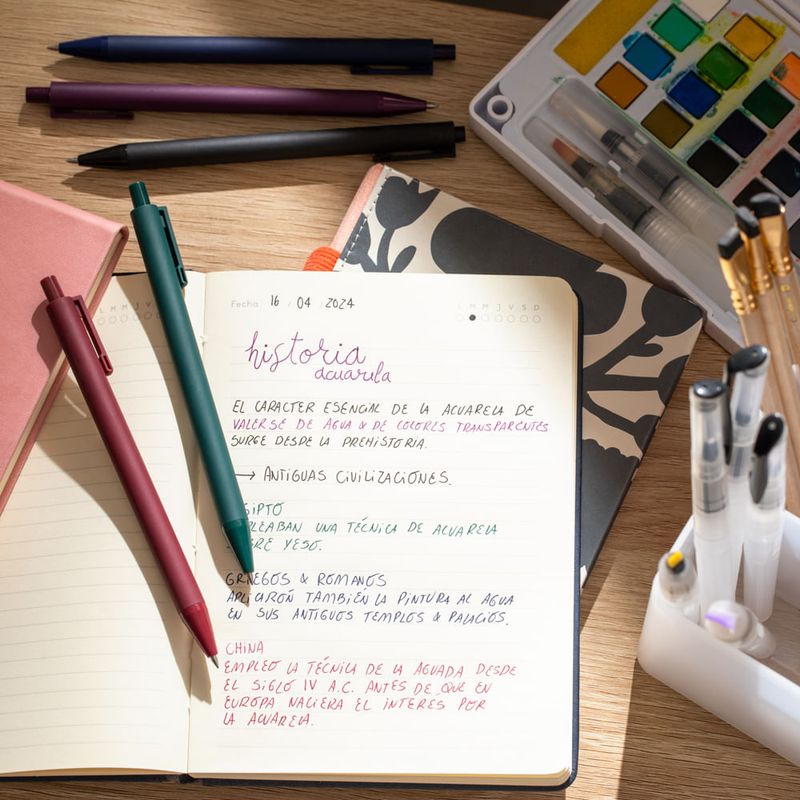 L M M J V
Fecha 16 / 04 / 2024
L M M J V S D
historia
acuarela
EL CARACTER ESENCIAL DE LA ACUARELA DE
VALERSE DE AGUA & DE COLORES TRANSPARENTES
SURGE DESDE LA PREHISTORIA.
→ ANTIGUAS CIVILIZACIONES.
GIPTO
PLEABAN UNA TÉCNICA DE ACUARELA
BRE YESO.
GRIEGOS & ROMANOS
APLICARON TAMBIÉN LA PINTURA AL AGUA
EN SUS ANTIGUOS TEMPLOS & PALACIOS.
CHINA
EMPLEO LA TÉCNICA DE LA AGUADA DESDE
EL SIGLO IV A.C. ANTES DE QUE EN
EUROPA NACIERA EL INTERES POR
LA ACUARELA.